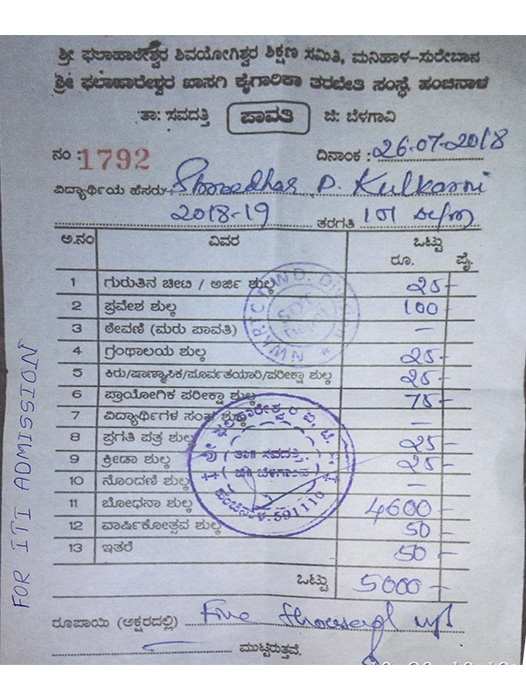 ಶ್ರೀ ಫಲಾಹಾರೇಶ್ವರ ಶಿವಯೋಗಿಶ್ವರ ಶಿಕ್ಷಣ ಸಮಿತಿ, ಮನಿಹಾಳ-ಸುರೇಬಾನ
ಶ್ರೀ ಫಲಾಹಾರೇಶ್ವರ ಖಾಸಗಿ ಕೈಗಾರಿಕಾ ತರಬೇತಿ ಸಂಸ್ಥೆ ಹಂಚಿನಾಳ
ತಾ: ಸವದತ್ತಿ ಪಾವತಿ ಜಿ: ಬೆಳಗಾವಿ
ನಂ : 1792 ದಿನಾಂಕ : 26-07-2018
ವಿದ್ಯಾರ್ಥಿಯ ಹೆಸರು: Shreedhar D. Kulkarni
2018-19 ತರಗತಿ 1st
ಅ.ನಂ ವಿವರ ಒಟ್ಟು
ರೂ. ಪೈ.
1 ಗುರುತಿನ ಚೀಟಿ / ಅರ್ಜಿ ಶುಲ್ಕ 25-
2 ಪ್ರವೇಶ ಶುಲ್ಕ 100-
3 ಠೇವಣಿ (ಮರು ಪಾವತಿ) -
4 ಗ್ರಂಥಾಲಯ ಶುಲ್ಕ 25-
5 ಕಿರು/ಷಾಣ್ಮಾಸಿಕ/ಪೂರ್ವತಯಾರಿ/ಪರೀಕ್ಷಾ ಶುಲ್ಕ 25-
6 ಪ್ರಾಯೋಗಿಕ ಪರೀಕ್ಷಾ ಶುಲ್ಕ 75-
7 ವಿದ್ಯಾರ್ಥಿಗಳ ಸಂಘ ಶುಲ್ಕ -
8 ಪ್ರಗತಿ ಪತ್ರ ಶುಲ್ಕ 25-
9 ಕ್ರೀಡಾ ಶುಲ್ಕ 25-
10 ನೊಂದಣಿ ಶುಲ್ಕ -
11 ಬೋಧನಾ ಶುಲ್ಕ 4600-
12 ವಾರ್ಷಿಕೋತ್ಸವ ಶುಲ್ಕ 50-
13 ಇತರೆ 50-
ಒಟ್ಟು 5000-
ರೂಪಾಯಿ (ಅಕ್ಷರದಲ್ಲಿ) Five thousand
ಮುಟ್ಟಿರುತ್ತವೆ.
FOR ITI ADMISSION
ಫಲಾಹಾರೇಶ್ವರ ಐ.ಟಿ.
ತಾ॥ ಸವದತ್ತಿ,
ಜಿ॥ ಬೆಳಗಾವಿ
ಹಂಚಿನಾಳ-591110